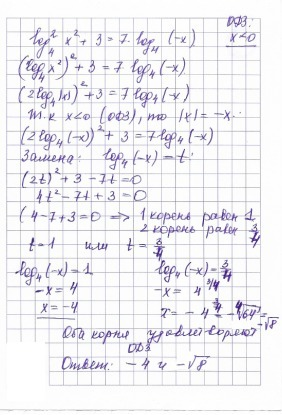 ОДЗ:
log₄² x² + 3 = 7 · log₄ (-x) x<0
(log₄ x²)² + 3 = 7 log₄(-x)
(2log₄|x|)² + 3 = 7 log₄(-x)
Т.к x<0 (ОДЗ), то |x| = -x:
(2log₄(-x))² + 3 = 7log₄(-x)
Замена: log₄(-x) = t:
(2t)² + 3 - 7t = 0
4t² - 7t + 3 = 0
(4-7+3=0 => 1 корень равен 1
2 корень равен 3/4
t=1 или t = 3/4
log₄(-x)=1 log₄(-x)=3/4
-x = 4 -x = 4^(3/4)
x = -4 x = -4^(3/4) = -⁴√64 =
-√8
Оба корня удовлетворяют
ОДЗ
Ответ: -4 и -√8